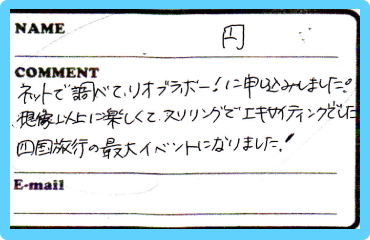 NAME
円
COMMENT
ネットで調べて、リオブラボー！に申し込みしました。
想像以上に楽しくて、スリリングでエキサイティングでした
四国旅行の最大イベントになりました！
E-mail